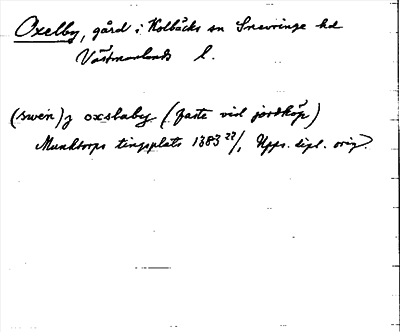 Oxelby, gård i Kolbäcks sn Snevringe hd
Västmanlands l.
(swen) j oxslaby (faste vid jordköp)
Munktorps tingsplats 1383 22/1 Upps. dipl. orig.